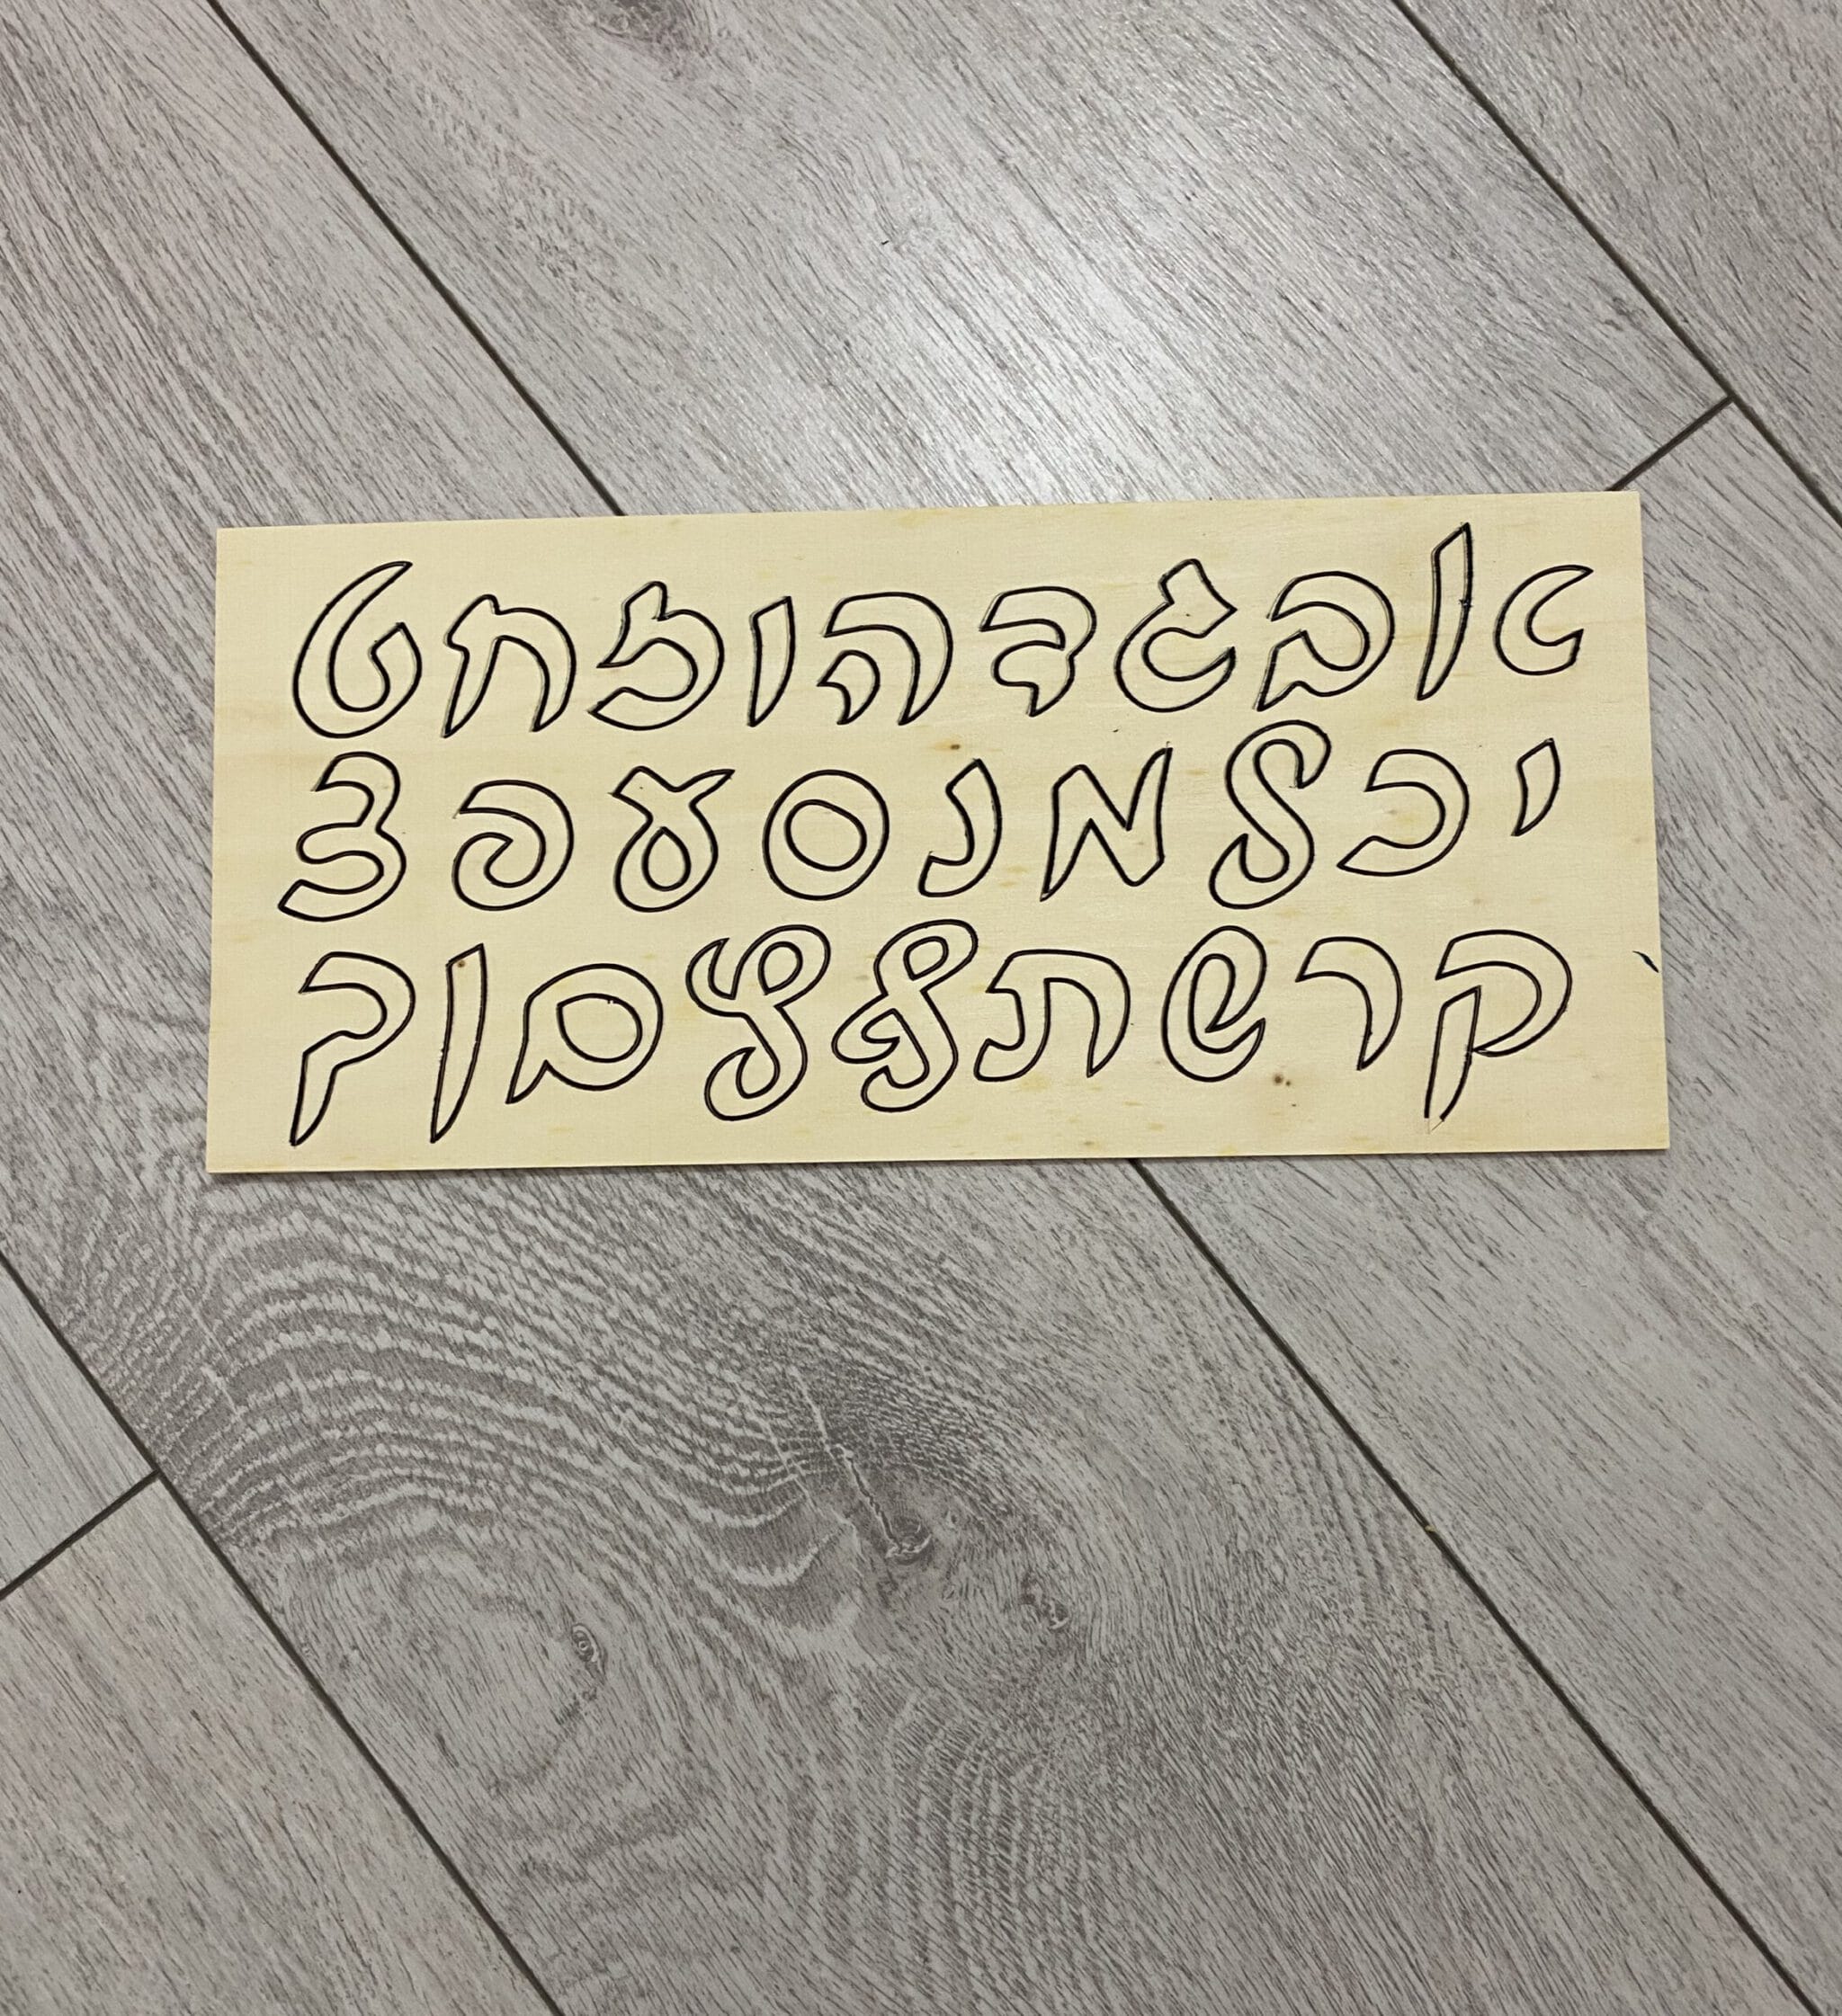 אבגדהוזחט
יכלמנסעפצ
קרשתףץםןך